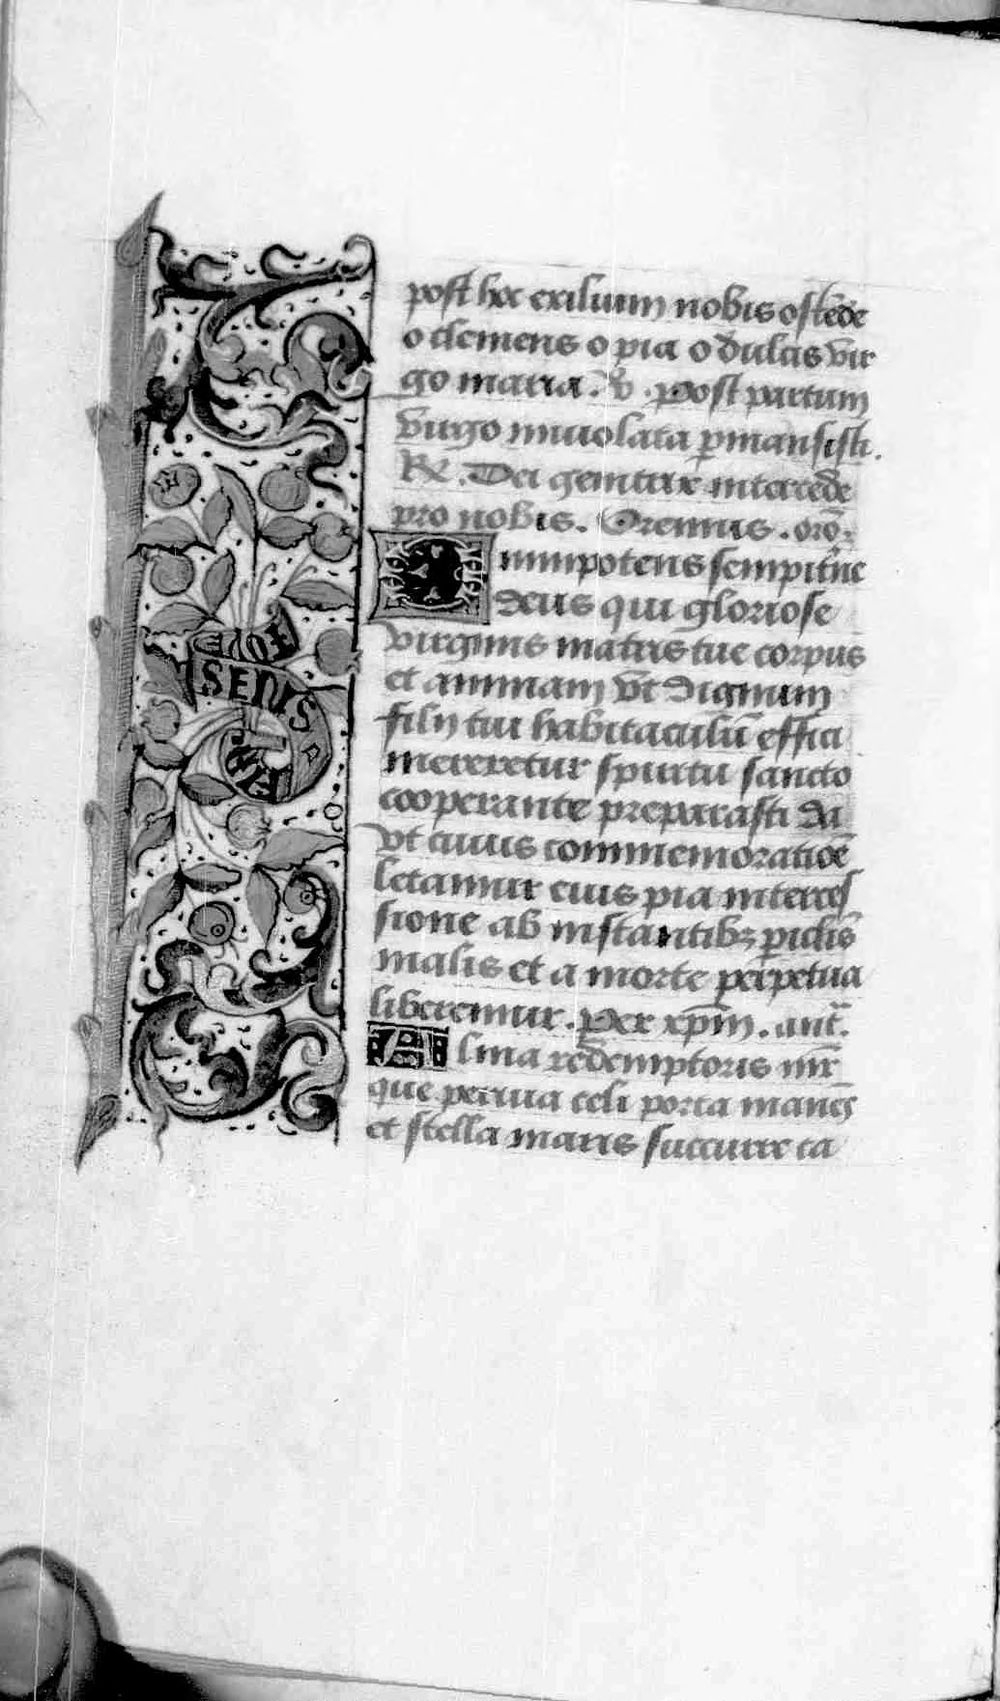 post hoc exilium nobis ostēde
o clemens o pia o dulcis vir
go maria. v̄. Post partum
virgo inuiolata pmansisti.
R̄. Dei genitrix intercede
pro nobis. Oremus. orō.
Omnipotens sempitne
deus qui gloriose
virginis matris tue corpus
et animam vt dignum
filij tui habitaculū effici
mereretur spiritu sancto
cooperante preparasti da
vt cuius commemoratiōe
letamur eius pia interces
sione ab instantibꝫ piclis
malis et a morte perpetua
liberemur. Per xp̄m. ant̄.
Alma redemptoris mr̄
que peruia celi porta manes
et stella maris succurre ca
SEIIS